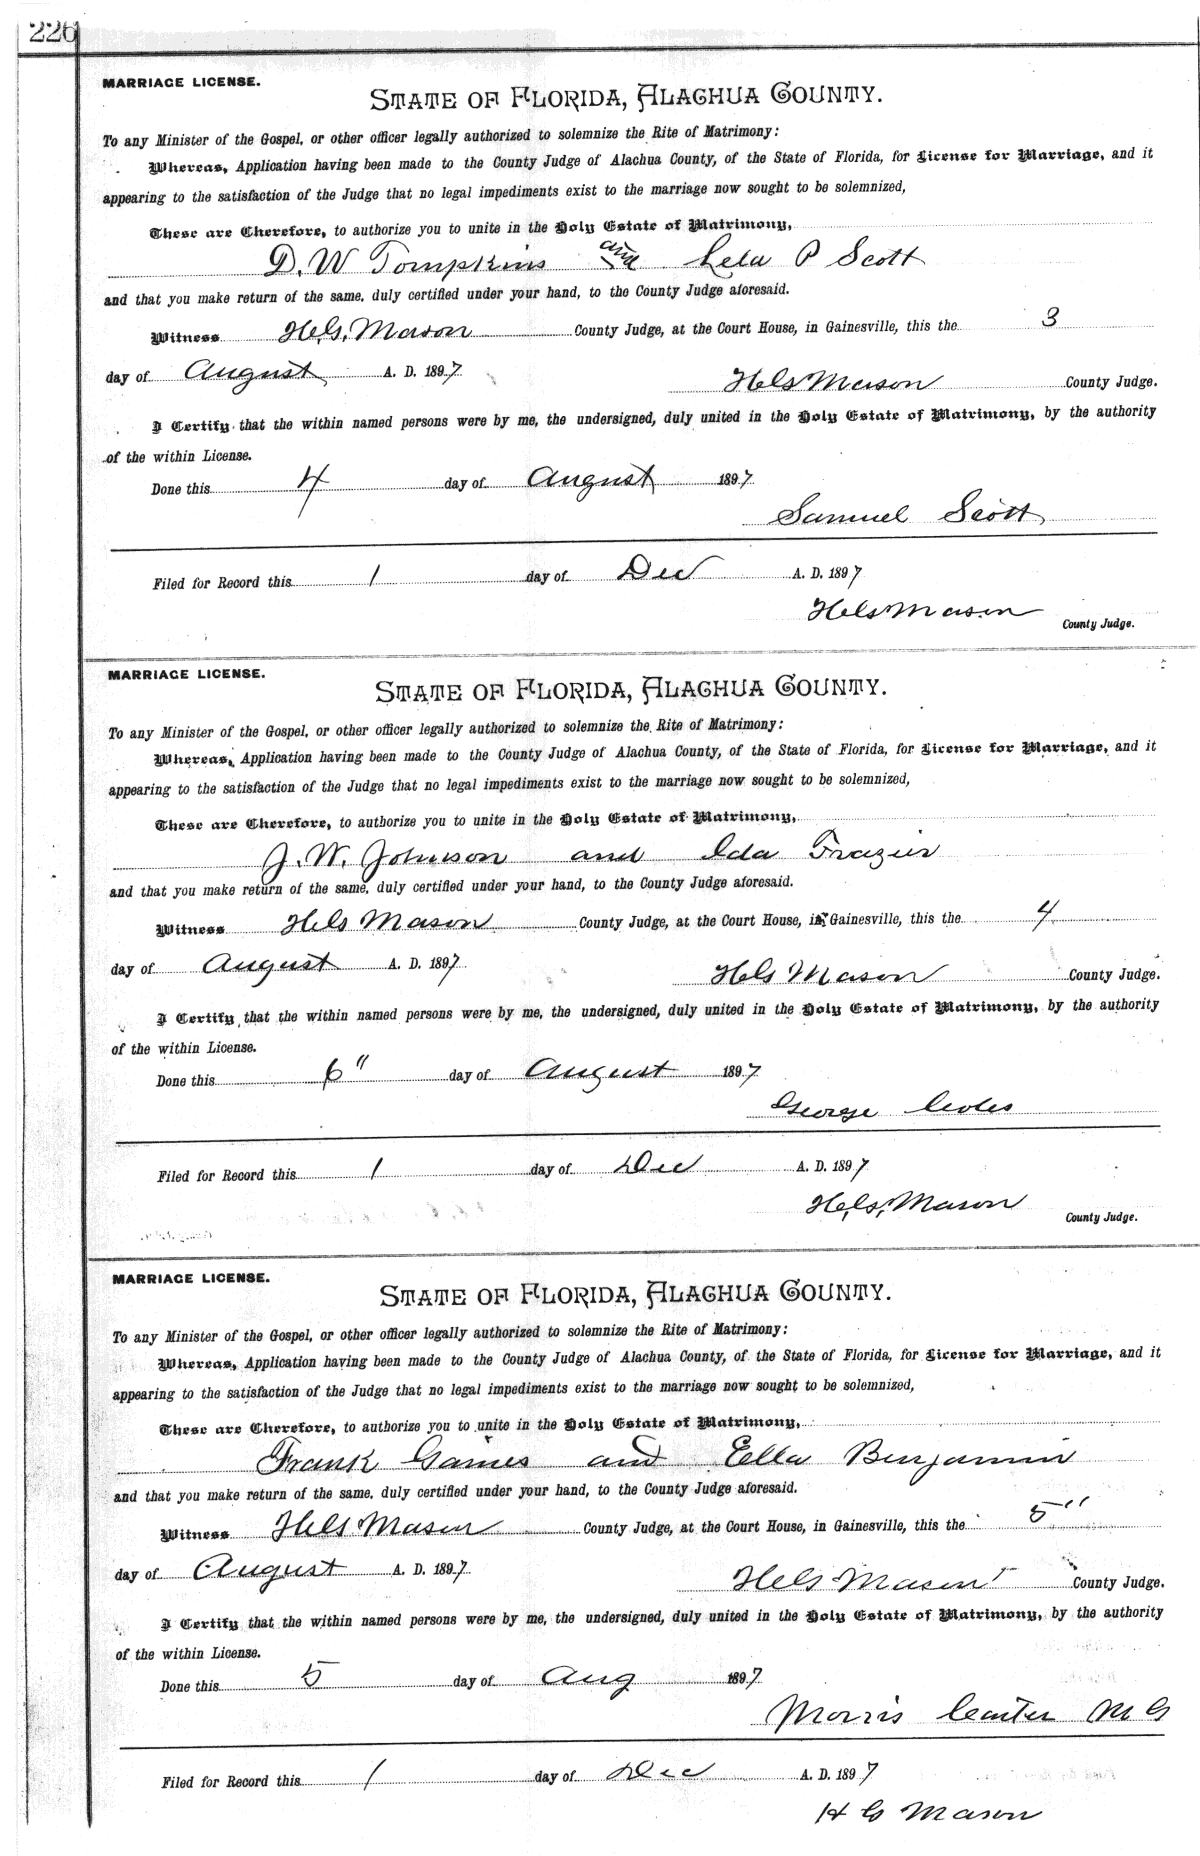 226
MARRIAGE LICENSE.
STATE OF FLORIDA, ALACHUA COUNTY.
To any Minister of the Gospel, or other officer legally authorized to solemnize the Rite of Matrimony:
Whereas, Application having been made to the County Judge of Alachua County, of the State of Florida, for License for Marriage, and it
appearing to the satisfaction of the Judge that no legal impediments exist to the marriage now sought to be solemnized,
These are Therefore, to authorize you to unite in the Holy Estate of Matrimony,
D. W Tompkins and Lela P Scott
and that you make return of the same, duly certified under your hand, to the County Judge aforesaid.
Witness H. G. Mason County Judge, at the Court House, in Gainesville, this the 3
day of August A. D. 1897
H G Mason County Judge.
I Certify that the within named persons were by me, the undersigned, duly united in the Holy Estate of Matrimony, by the authority
of the within License.
Done this 4 day of August 1897
Samuel Scott
Filed for Record this 1 day of Dec A. D. 1897
H G Mason
County Judge.
MARRIAGE LICENSE.
STATE OF FLORIDA, ALACHUA COUNTY.
To any Minister of the Gospel, or other officer legally authorized to solemnize the Rite of Matrimony:
Whereas, Application having been made to the County Judge of Alachua County, of the State of Florida, for License for Marriage, and it
appearing to the satisfaction of the Judge that no legal impediments exist to the marriage now sought to be solemnized,
These are Therefore, to authorize you to unite in the Holy Estate of Matrimony,
J. W. Johnson and Ida Frazier
and that you make return of the same, duly certified under your hand, to the County Judge aforesaid.
Witness H G Mason County Judge, at the Court House, in Gainesville, this the 4
day of August A. D. 1897
H G Mason County Judge.
I Certify that the within named persons were by me, the undersigned, duly united in the Holy Estate of Matrimony, by the authority
of the within License.
Done this 6" day of August 1897
George
Filed for Record this 1 day of Dec A. D. 1897
H. G. Mason
County Judge.
MARRIAGE LICENSE.
STATE OF FLORIDA, ALACHUA COUNTY.
To any Minister of the Gospel, or other officer legally authorized to solemnize the Rite of Matrimony:
Whereas, Application having been made to the County Judge of Alachua County, of the State of Florida, for License for Marriage, and it
appearing to the satisfaction of the Judge that no legal impediments exist to the marriage now sought to be solemnized,
These are Therefore, to authorize you to unite in the Holy Estate of Matrimony,
Frank Gaines and Ella Benjamin
and that you make return of the same, duly certified under your hand, to the County Judge aforesaid.
Witness H G Mason County Judge, at the Court House, in Gainesville, this the 5"
day of August A. D. 1897
H G Mason County Judge.
I Certify that the within named persons were by me, the undersigned, duly united in the Holy Estate of Matrimony, by the authority
of the within License.
Done this 5 day of Aug 1897
Morris Carter M G
Filed for Record this 1 day of Dec A. D. 1897
H G Mason